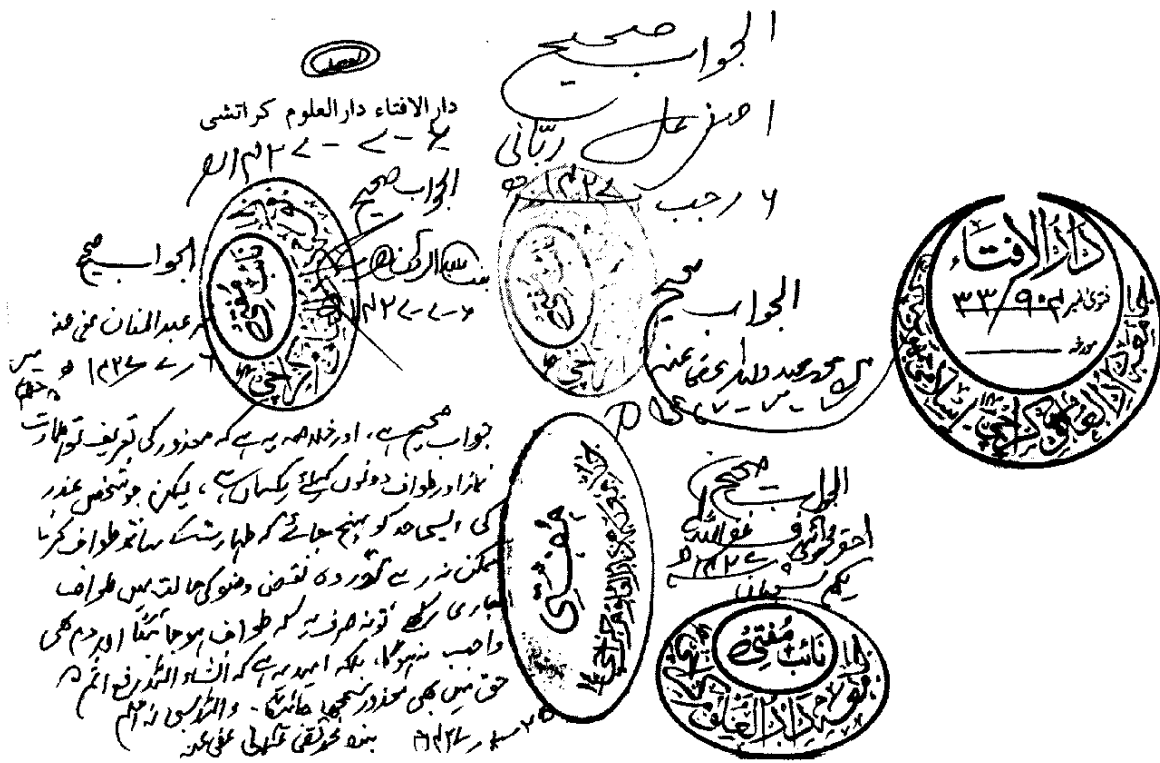 الجواب صحیح
اصغر علی ربّانی
۶ رجب ۱۴۲۷ھ
دار الافتاء دار العلوم کراتشی
۶-۷-۱۴۲۷ھ
الجواب صحیح
۶-۷-۱۴۲۷ھ
نائب مفتی
الجواب صحیح
عبد المنان عفی عنہ
۶-۷-۱۴۲۷ھ
الجواب صحیح
دار الافتاء
فتویٰ نمبر ۹۰۲/۳۳
مورخہ
جواب صحیح ہے، اور خلاصہ یہ ہے کہ معذور کی تعریف تو طہارت
نماز اور طواف دونوں کیلئے یکساں ہے، لیکن جو شخص عذر
کی ایسی حد کو پہنچ جائے کہ طہارت کے ساتھ طواف کرنا
ممکن نہ رہے اور وہ نقض وضو کی حالت میں طواف
جاری رکھے تو نہ صرف یہ کہ طواف ہو جائیگا اور دم بھی
واجب نہ ہوگا، بلکہ امید ہے کہ انشاء اللہ رفع اثم کے
حق میں بھی معذور سمجھا جائیگا۔ واللہ سبحانہ اعلم
بندہ محمد تقی عثمانی عفی عنہ
مفتی
الجواب صحیح
احقر محمود اشرف غفر اللہ لہ
یکم شعبان ۱۴۲۷ھ
نائب مفتی
جامعہ دار العلوم کراچی